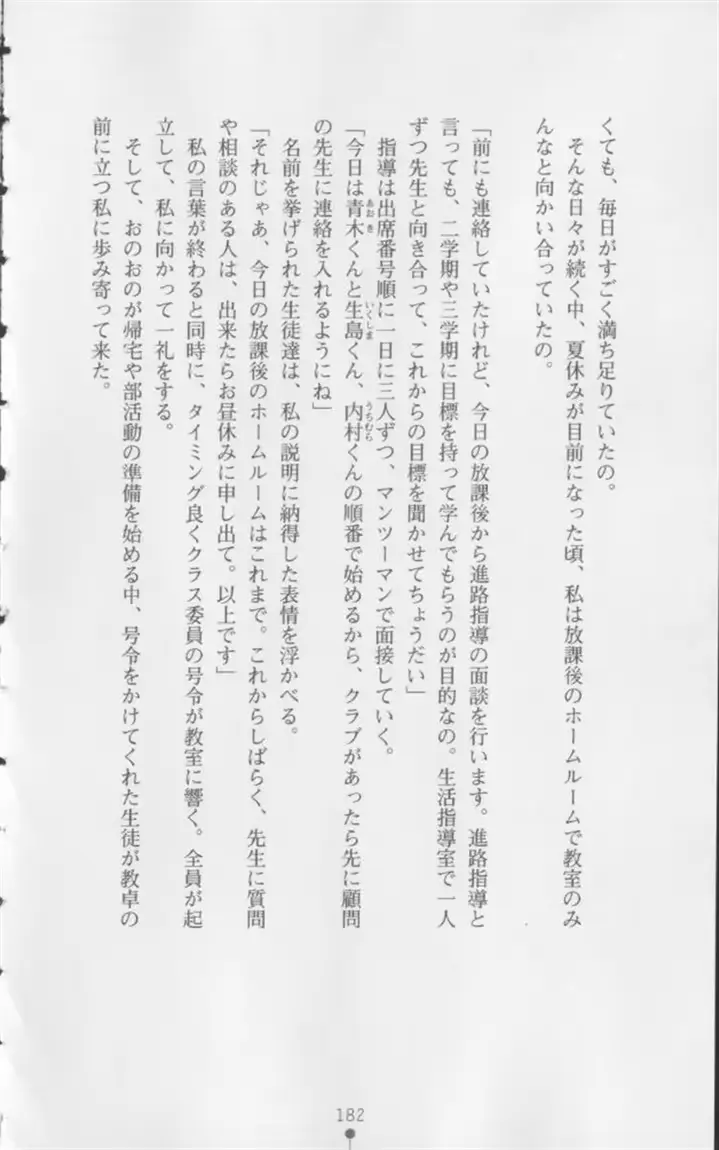 くても、毎日がすごく満ち足りていたの。
そんな日々が続く中、夏休みが目前になった頃、私は放課後のホームルームで教室のみ
んなと向かい合っていたの。
「前にも連絡していたけれど、今日の放課後から進路指導の面談を行います。進路指導と
言っても、二学期や三学期に目標を持って学んでもらうのが目的なの。生活指導室で一人
ずつ先生と向き合って、これからの目標を聞かせてちょうだい」
指導は出席番号順に一日に三人ずつ、マンツーマンで面接していく。
「今日は青木くんと生島くん、内村くんの順番で始めるから、クラブがあったら先に顧問
あおき
いくしま
うちむら
の先生に連絡を入れるようにね」
名前を挙げられた生徒達は、私の説明に納得した表情を浮かべる。
「それじゃあ、今日の放課後のホームルームはこれまで。これからしばらく、先生に質問
や相談のある人は、出来たらお昼休みに申し出て。以上です」
私の言葉が終わると同時に、タイミング良くクラス委員の号令が教室に響く。全員が起
立して、私に向かって一礼をする。
そして、おのおのが帰宅や部活動の準備を始める中、号令をかけてくれた生徒が教卓の
前に立つ私に歩み寄って来た。
182